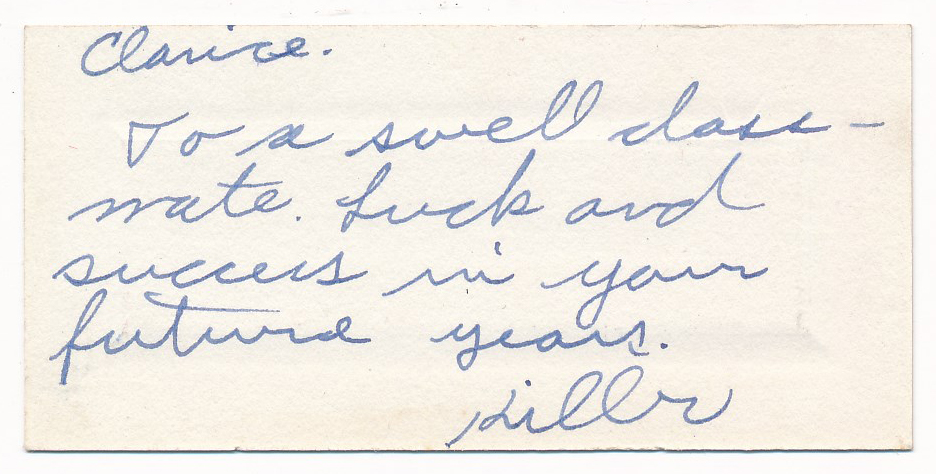 Clarice.
To a swell class-
mate. Luck and
success in your
future years.